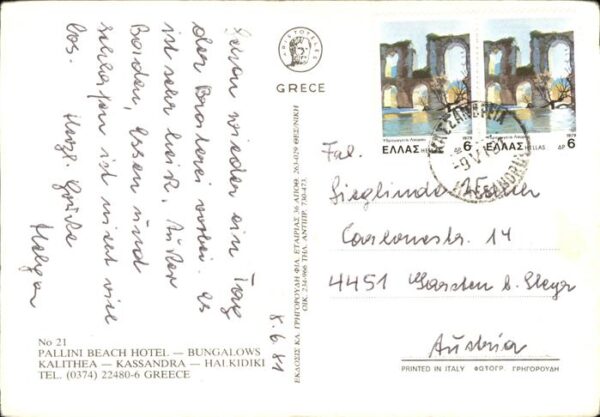 Schon wieder ein Tag
der Braterei vorbei. Es
ist sehr heiß. Außer
Baden, Essen und
schlafen ist nicht viel
los.
Herzl. Grüße
Holger
8.6.81
No 21
PALLINI BEACH HOTEL — BUNGALOWS
KALITHEA — KASSANDRA — HALKIDIKI
TEL. (0374) 22480-6 GREECE
ARISTOTELES
GRECE
ΕΚΔΟΣΙΣ ΚΑ. ΓΡΗΓΟΡΟΥΔΗ ΦΙΛ. ΕΤΑΙΡΙΑΣ 36 ΑΠΟΘ. 263-029 ΘΕΣ/ΝΙΚΗ
ΟΙΚ. 234-966 ΤΗΛ. ΑΝΤΙΠΡ. 730-473.
1979
ΕΛΛΑΣ HELLAS ΔΡ 6
1979
ΕΛΛΑΣ HELLAS ΔΡ 6
ΚΑΣΣΑΝΔΡΕΙΑ
-9 VI
Frl.
Sieglinde
Carlonestr. 14
4451 Garsten b. Steyr
Austria
PRINTED IN ITALY ΦΩΤΟΓΡ. ΓΡΗΓΟΡΟΥΔΗ